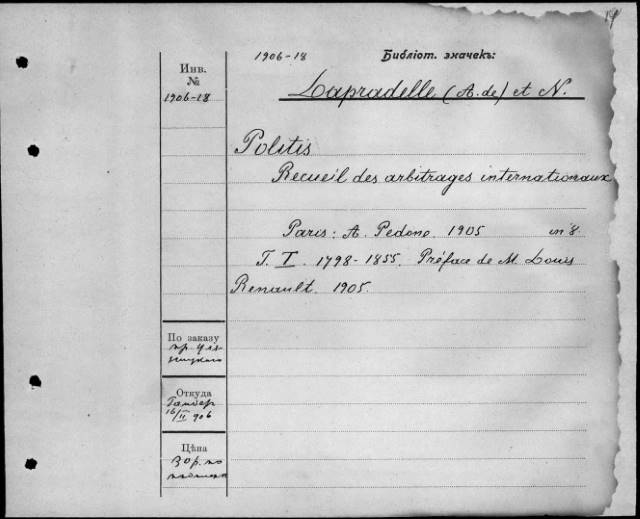 Инв.
№
1906-18
1906-18
Библіот. значекъ:
Lapradelle (A. de) et N.
Politis
Recueil des arbitrages internationaux
Paris: A. Pedone 1905 in 8
T. I. 1798-1855. Préface de M. Louis
Renault. 1905.
По заказу
пр.
Откуда
16/II 906
Цѣна